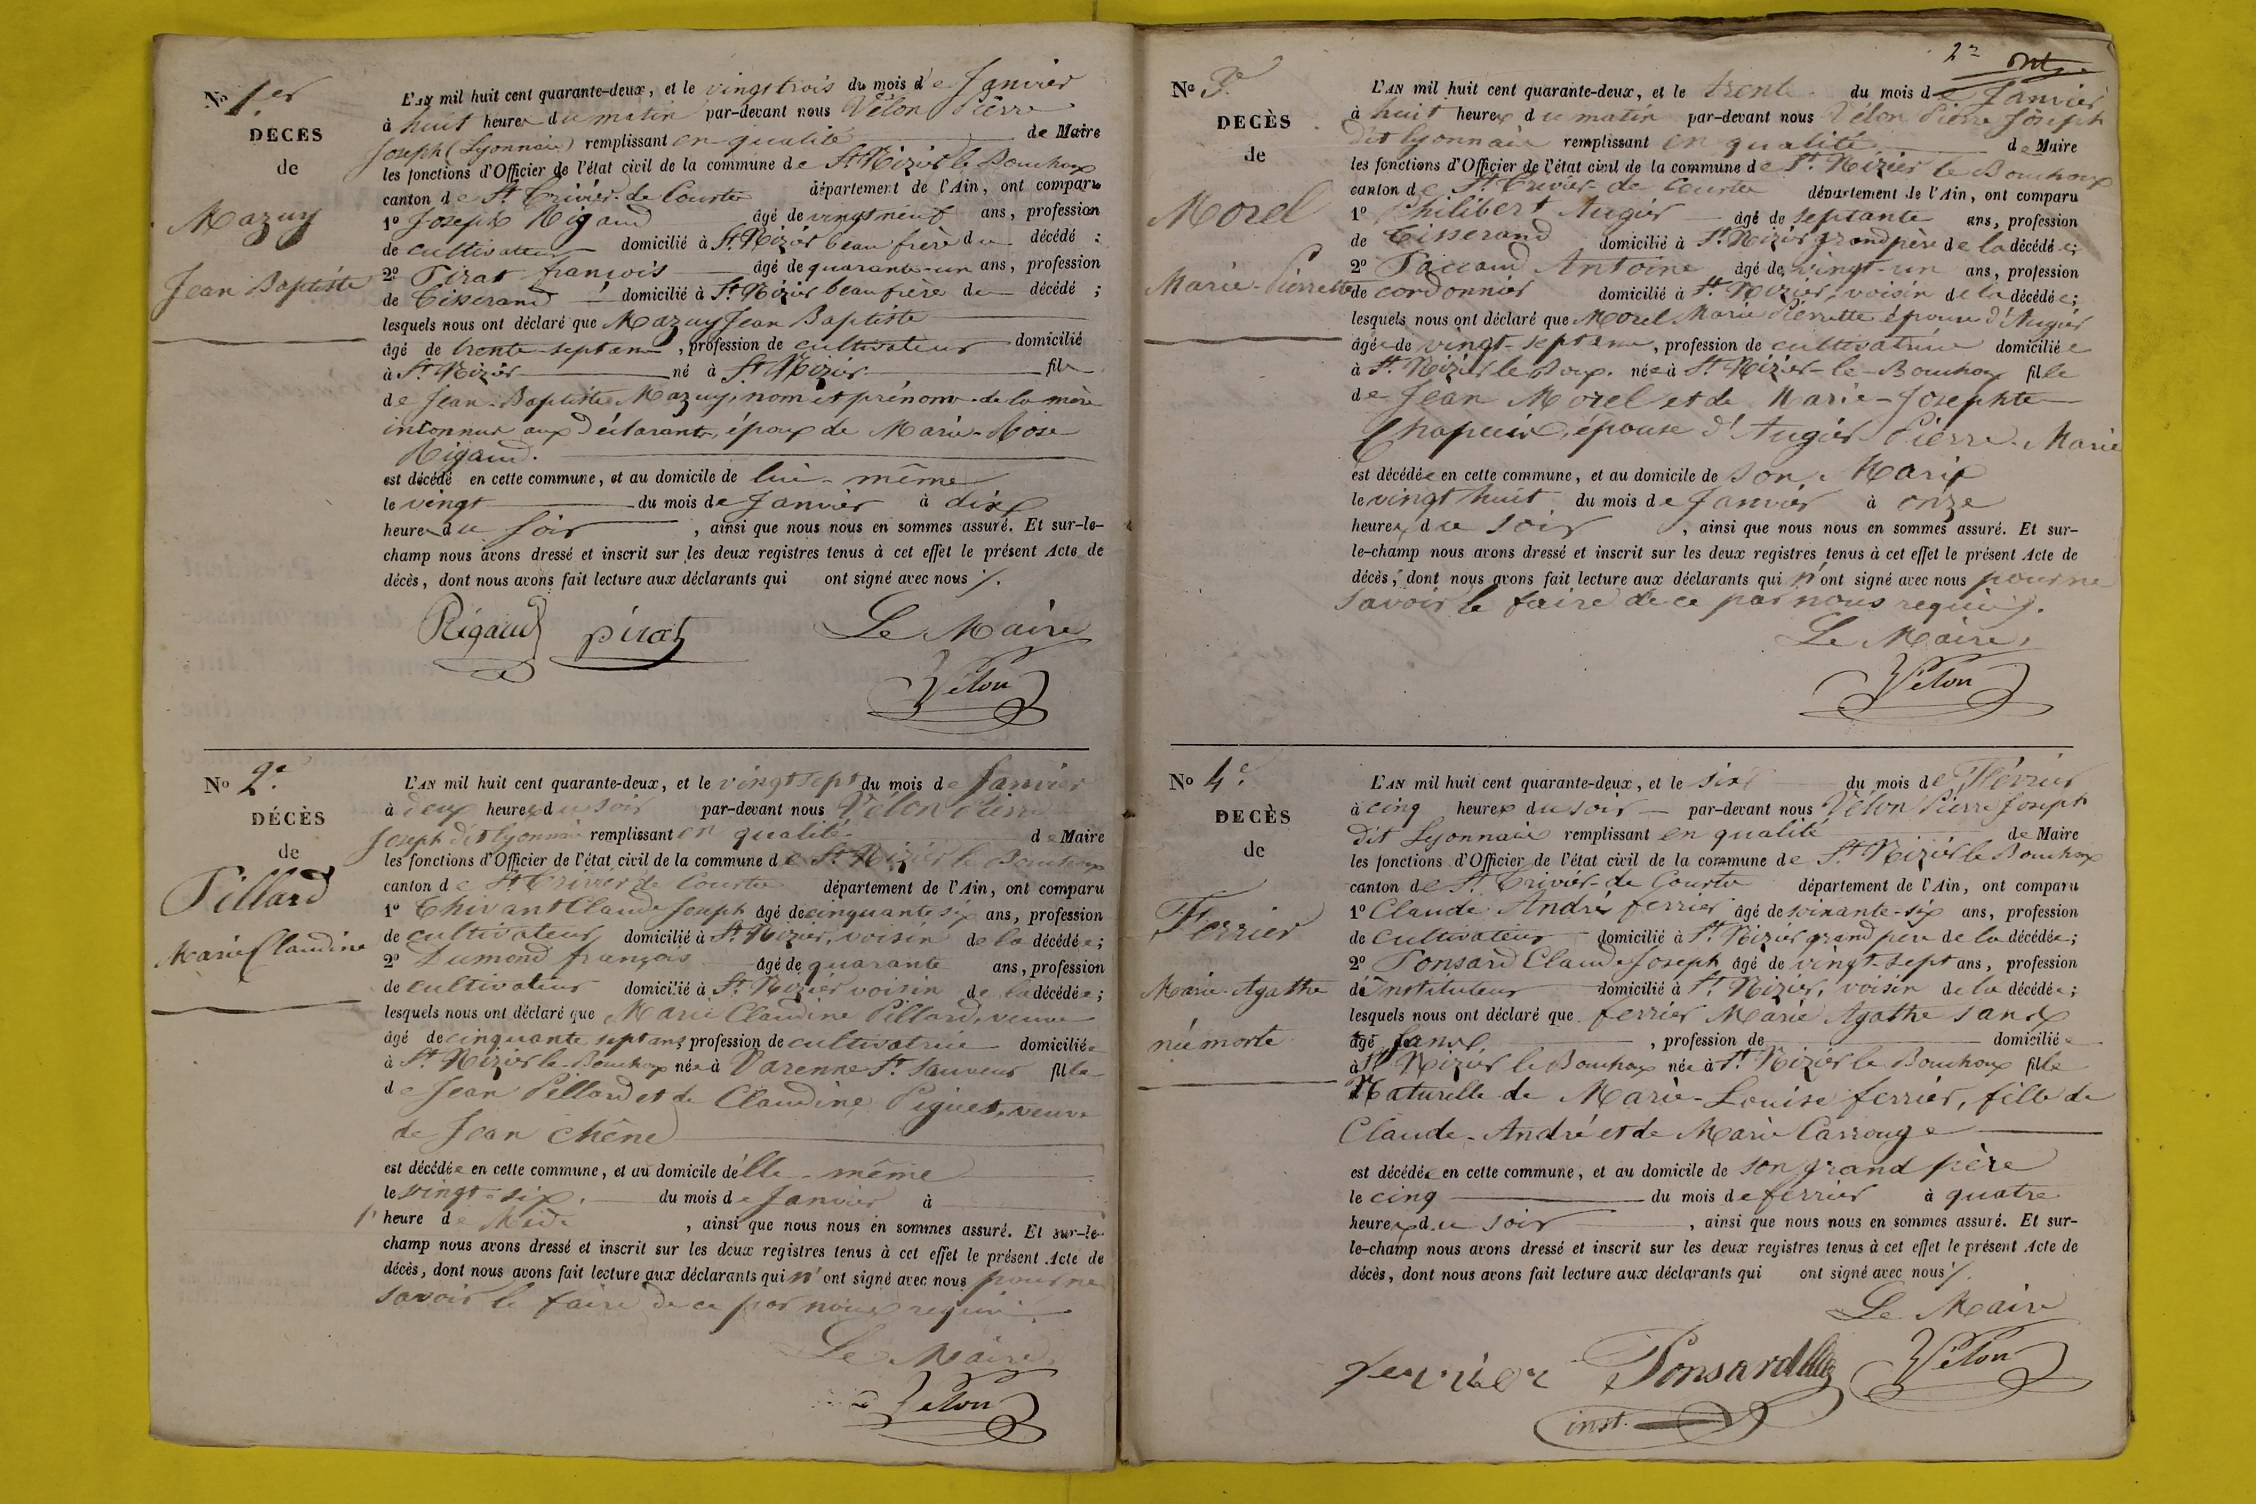 No 1.er
DECÈS
de
Mazuy
Jean Baptiste
L'AN mil huit cent quarante-deux, et le vingt trois du mois de Janvier
à huit heures du matin par-devant nous Vélon Pierre
Joseph (Lyonnais) remplissant en qualité de Maire
les fonctions d'Officier de l'état civil de la commune de St. Nizier le Bouchoux
canton de St. Trivier-de Courtes département de l'Ain, ont comparu
1º Joseph Rigaud âgé de vingt neuf ans, profession
de cultivateur domicilié à St. Nizier beau frère du décédé ;
2º Pirat françois âgé de quarante-un ans, profession
de Tisserand domicilié à St. Nizier beau frère du décédé ;
lesquels nous ont déclaré que Mazuy Jean Baptiste
âgé de trente-sept ans, profession de cultivateur domicilié
à St. Nizier né à St. Nizier fils
de Jean-Baptiste Mazuy, nom et prénom de la mère
inconnus aux déclarants, époux de Marie-Rose
Rigaud.
est décédé en cette commune, et au domicile de lui-même
le vingt du mois de Janvier à dix
heures du soir, ainsi que nous nous en sommes assuré. Et sur-le-
champ nous avons dressé et inscrit sur les deux registres tenus à cet effet le présent Acte de
décès, dont nous avons fait lecture aux déclarants qui ont signé avec nous /.
Rigaud pirat Le Maire
Vélon
No 2.e
DÉCÈS
de
Pillard
Marie Claudine
L'AN mil huit cent quarante-deux, et le vingt sept du mois de Janvier
à deux heures du soir par-devant nous Vélon Pierre
Joseph dit lyonnais remplissant en qualité de Maire
les fonctions d'Officier de l'état civil de la commune de St. Nizier le Bouchoux
canton de St. Trivier de Courtes département de l'Ain, ont comparu
1º Thivant Claude Joseph âgé de cinquante six ans, profession
de cultivateur domicilié à St. Nizier, voisin de la décédée ;
2º Dumond françois âgé de quarante ans, profession
de cultivateur domicilié à St. Nizier voisin de la décédée ;
lesquels nous ont déclaré que Marie Claudine Pillard, veuve
âgé de cinquante sept ans profession de cultivatrice domiciliée
à St. Nizier le Bouchoux née à Varenne St. Sauveur fille
de Jean Pillard et de Claudine Piguet, veuve
de Jean Chêne
est décédée en cette commune, et au domicile d'elle-même
le vingt-six. du mois de Janvier à
heure de Midi, ainsi que nous nous en sommes assuré. Et sur-le-
champ nous avons dressé et inscrit sur les deux registres tenus à cet effet le présent Acte de
décès, dont nous avons fait lecture aux déclarants qui n'ont signé avec nous pour ne
savoir le faire de ce par nous requis.
Le Maire
Vélon
2e
No 3.e
DECÈS
de
Morel
Marie-Pierrette
L'AN mil huit cent quarante-deux, et le trente du mois de Janvier
à huit heures du matin par-devant nous Vélon Pierre Joseph
dit lyonnais remplissant en qualité de Maire
les fonctions d'Officier de l'état civil de la commune de St. Nizier le Bouchoux
canton de St. Trivier-de Courtes département de l'Ain, ont comparu
1º Philibert Augier âgé de septante ans, profession
de Tisserand domicilié à St. Nizier grand père de la décédée ;
2º Paccaud Antoine âgé de vingt-un ans, profession
de cordonnier domicilié à St. Nizier, voisin de la décédée ;
lesquels nous ont déclaré que Morel Marie Pierrette épouse d'Augier
âgée de vingt-sept ans, profession de cultivatrice domiciliée
à St. Nizier le Boux. née à St. Nizier-le-Bouchoux fille
de Jean Morel et de Marie-Josephte
Chapuis, épouse d'Augier Pierre-Marie
est décédée en cette commune, et au domicile de son Mari
le vingt huit du mois de Janvier à onze
heures du soir, ainsi que nous nous en sommes assuré. Et sur-
le-champ nous avons dressé et inscrit sur les deux registres tenus à cet effet le présent Acte de
décès, dont nous avons fait lecture aux déclarants qui n'ont signé avec nous pour ne
savoir le faire de ce par nous requis /.
Le Maire,
Vélon
No 4.e
DECÈS
de
Ferrier
Marie-Agathe
née morte
L'AN mil huit cent quarante-deux, et le six du mois de Février
à cinq heures du soir par-devant nous Vélon Pierre Joseph
dit Lyonnais remplissant en qualité de Maire
les fonctions d'Officier de l'état civil de la commune de St. Nizier le Bouchoux
canton de St. Trivier-de Courtes département de l'Ain, ont comparu
1º Claude André ferrier âgé de soixante-six ans, profession
de cultivateur domicilié à St. Nizier grand père de la décédée ;
2º Ponsard Claude Joseph âgé de vingt-sept ans, profession
d'instituteur domicilié à St. Nizier, voisin de la décédée ;
lesquels nous ont déclaré que ferrier Marie Agathe sans
âgé, profession de domiciliée
à St. Nizier le Bouchoux née à St. Nizier le Bouchoux fille
Naturelle de Marie-Louise ferrier, fille de
Claude-André et de Marie Carrouge
est décédée en cette commune, et au domicile de son grand père
le cinq du mois de ferrier à quatre
heures du soir, ainsi que nous nous en sommes assuré. Et sur-
le-champ nous avons dressé et inscrit sur les deux registres tenus à cet effet le présent Acte de
décès, dont nous avons fait lecture aux déclarants qui ont signé avec nous /.
Le Maire
ferrier Ponsard Vélon
inst.